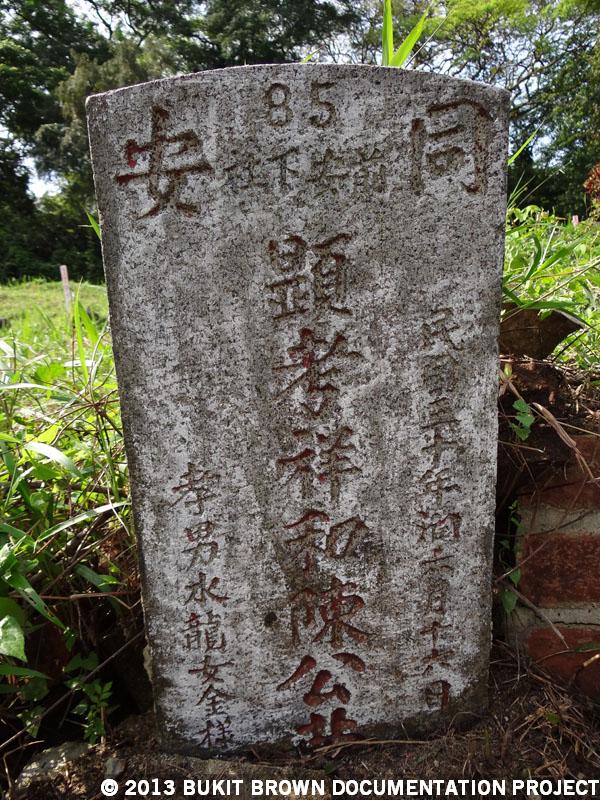 85
同安
前安下社
民國三十年閏六月十六日
顕考祥和陳公墓
孝男水龍女金樣
© 2013 BUKIT BROWN DOCUMENTATION PROJECT